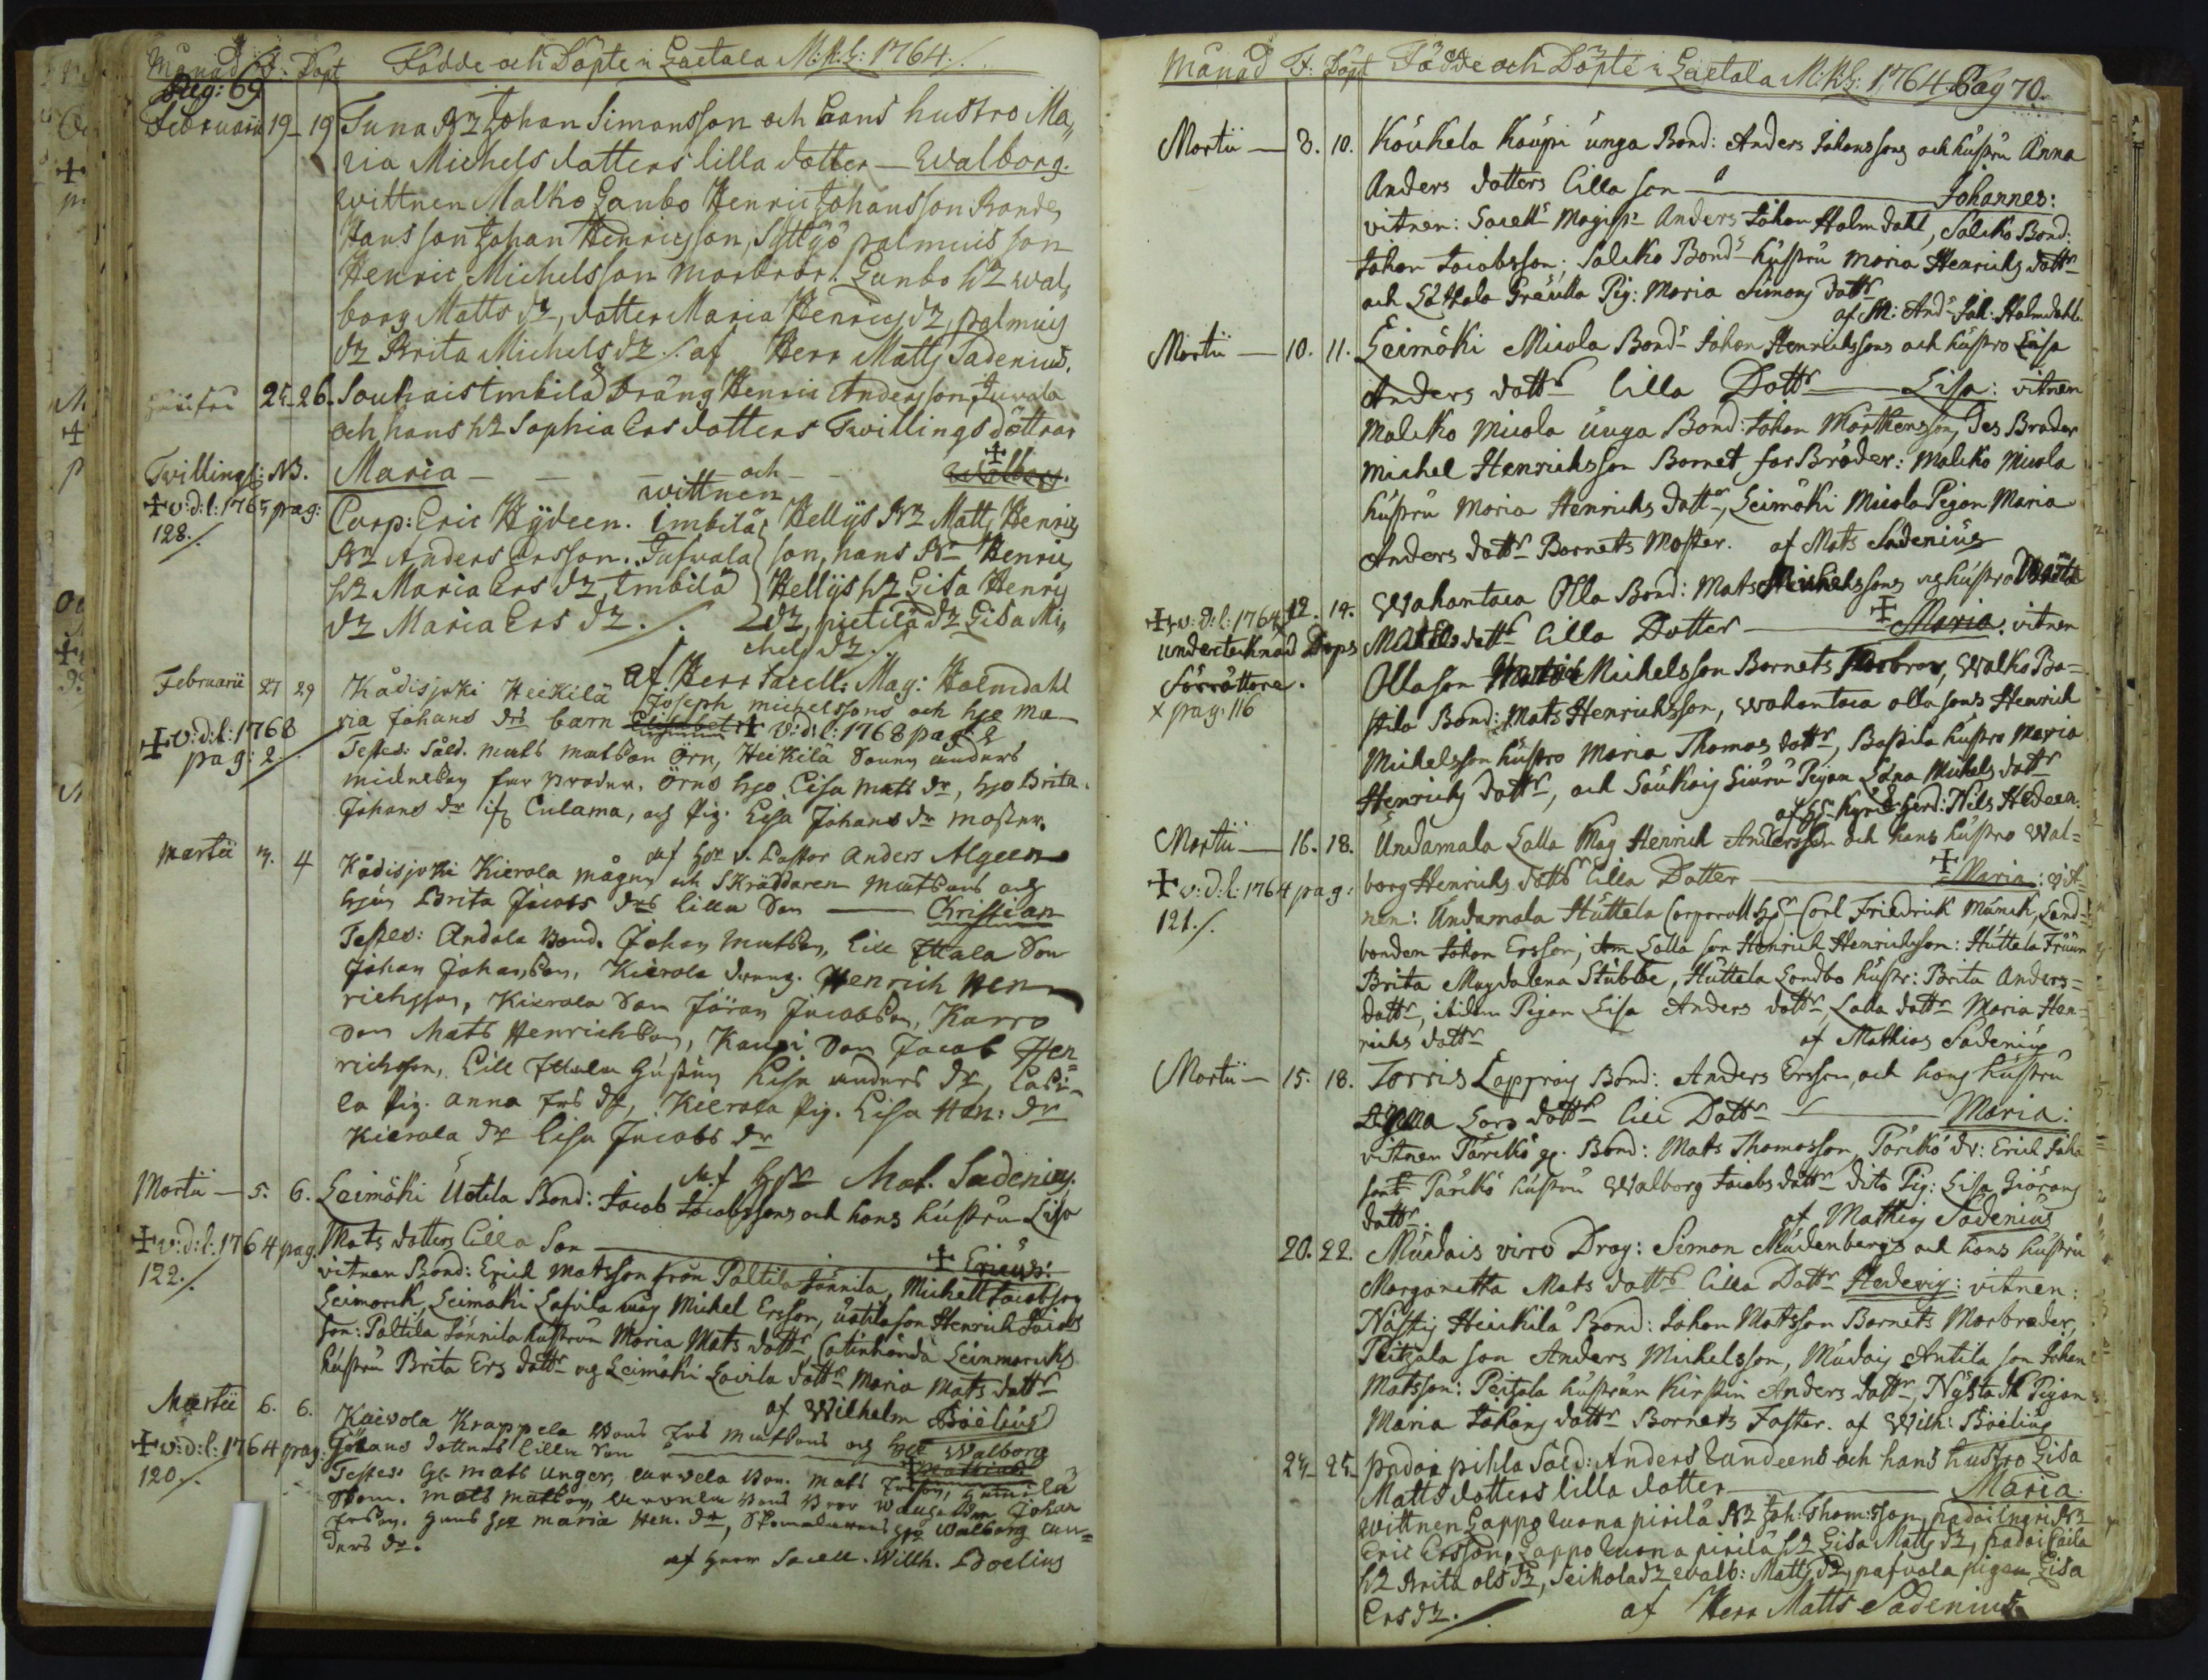 Månad F. Döpt Födde och Döpte i Laetala M:K:L: 1764.
Pag: 69
Februarii 19 19 Tuna Bz Johan Simonsson och hans hustro Ma,,
ria Michels dotters lilla dotter — Walborg.
wittnen Malko Lanbo Henric Johansson Bonde,
Hans son Johan Henricsson, palmuis son
Henric Michelsson morbror. Lanbo hz wal,,
borg Matts dz, dotter Maria Henrics dz, palmuis
dz Brita Michels dz ./. af Herr Matts Sadenius.
24 26. Soukais Imbilä dräng Henric Andersson Juvala
och hans hz Sophia Ers dotters Twillings döttrar
Twilling: NB. Maria — och — Walborg.
✝ v:d:l: 1765 pag: wittnen
128./. Corp: Eric Hydeen. Imbilä Hellys Bz Matts Henrics
Bz Anders Ersson. Jufvala son, hans Br Henric
hz Maria Ers dz, Imbilä Hellys hz Lisa Henrics
dz Maria Ers dz ./. dz, pietilä dz Lisa Mi,,
chels dz ./.
af Herr Sacell: Mag: Holmdahl
Februarii 27 29 Kådisjoki Heikilä Joseph Michelssons och hjo Ma
✝ v:d:l: 1768 ria Johans drs barn Elisabet ✝ v:d:l: 1768 pag: 2
pag: 2./. Testes: Såld. Mats Matsson Örn, Heikilä Sonen anders
michelsson far broder. Örns hjo Lisa Mats dr, hjo Brita
Johans dr if Culama, och Pig. Lisa Johans dr moster.
af hr v. Pastor Anders Algeen
Martii 3. 4 Kådisjoki Kierola mågens och Skräddaren Matsons och
hjus Brita Jacobs drs lilla Son — Christian
Testes: Andola Bond. Johan Matsson, Lill Ittala Son
Johan Johansson, Kierola dreng. Henrich Hen
richsson, Kierola Son Jöran Jacobsson, Karro
Son Mats Henrichsson, Kaupi Son Jacob Hen=
richsson, Lill Ittala Hustrun Lisa anders dr, Casi=
la Pig. Anna Ers dr, Kierola Pig. Lisa Hen: dr
Kierola dr Lisa Jacobs dr
af Hr Mat. Sadenius.
Martii — 5. 6. Leimäki Uotila Bond: Jacob Jacobssons och hans hustru Lisa
✝ v:d:l: 1764 pag. Mats dotters lilla Son — ✝ Ericus:
122./. vitnen Bond: Erich Matsson från Paltila Jännila, Michell Jacobsson
Leimorik, Leimäki Lafvila Måg Michel Ersson, Uotila son Henrich Jacobs
son: Paltila Jännila hustrun Maria Mats dottr, Leinmoriks
hustru Brita Ers dottr og Leimäki Lavila dottr Maria Mats dottr
af Wilhelm Böelius
Martii 6. 6. Kaivola Krappela Bond Ers Matsons och hjo Walborg
✝ v:d:l: 1764 pag. Johans dotters lilla Son — Mathias
120./. Testes: Gl. Mats Unger, Mats Ersson,
Mats Matsson, Johan
Ersson. hans hjo Maria Hen. dr, hjo Walborg an=
ders dr.
af Herr Sacell. Wilh. Boelius
Månad F: Döpt Födde och Döpte i Laetala M:K:L: 1764 Pag 70.
Martii — 8. 10. Koukela Kaupi unga Bond: Anders Johanssons och hustru Anna
Anders dotters lilla son — Johannes:
vitnen: Sacell Magist Anders Johan Holmdahl, Salcko Bond:
Johan Jacobsson; Salcko Bonds hustru Maria Henrichs dottr
och Lättala Gräulla Pig: Maria Simons dottr
af M: And: Joh: Holmdahl.
Martii — 10. 11. Leimäki Micola Bond Johan Henrichssons och hustro Lisa
Anders dottr lilla Dottr — Lisa: vitnen
Malcko Micola unga Bond: Johan Mårthensson, des Broder
Michel Henrichsson Barnet far Bröder: Malcko Micola
hustru Maria Henrichs dottr, Leimäki Micola Pigan Maria
Anders dottr Barnets Moster. af Mats Sadenius
✝ v:d:l: 1764 12. 14. Wahantaca Olla Bond: Mats Michelssons og hustro Brita
undertecknad Dops Michels dottr lilla Dotter — ✝ Maria: vitnen
Förrättare. Olla son Michelsson Barnets Farbror, Walko Ba=
x pag. 116 stila Bond: Mats Henrichsson, Wahantaca olla sons Henrich
Michelsson hustro Maria Thomas dottr, Bastila hustro Maria
Henrichs dottr, och Soukais Siuru Pigan Lena Michels dottr
af Hr Kyrkoherd: Nils Hedeen.
Martii — 16. 18. Undamala Lalla Måg Henrich Andersson och hans hustro Wal=
✝ v:d:l: 1764 pag: borg Henrichs dottr lilla Dotter — ✝ Maria: vit=
121./. nen: Undamala Hüttela Corporall Hr Corl Friedrick Münck, Land=
bonden Johan Ersson; Lalla son Henrich Henrichsson: Hüttela Fruun
Brita Magdalena Stubbe, Hüttela Landbo hustr: Brita Anders=
dottr, ibidem Pigan Lisa Anders dottr, Lalla dottr Maria Hen=
richs dottr af Mathias Sadenius
Martii — 15. 18. Torris Lappros Bond: Anders Ersson, och hans hustru
Agnna Lars dottr lill Dottr — Maria:
vitnen Pärikö gl. Bond: Mats Thomasson, Pärikö dr: Erich Joha
sont Pärikö hustru Walborg Jacobs dottr dito Pig: Lisa Giörans
dottr. af Mathias Sadenius
20. 22. Mudais virro Drag: Simon Mudenbergs och hans hustru
Margaretha Mats dottr lilla Dottr Hedevig: vitnen:
Nästis Heickilä Bond: Johan Matsson Barnets Morbroder,
Peitzala son Anders Michelsson, Mudais Antila son Johan
Matsson: Peitsala hustrun Kirstin Anders dottr, Nystadh Pigan
Maria Johans dottr Barnets Faster. af Wilh: Böelius
24 25 padoi pihla Såld: Anders Lundeens och hans hustro Lisa
Matts dotters lilla dotter — Maria.
wittnen Lappo Luona pirilä Bz Joh: Thom:sson, padoi Ingri Bz
Eric Ersson, Lappo Luona pirilä hz Lisa Matts dz, padoi Caila
hz Brita ols dz, Seikola dz walb: Matts dz, pafvola pigan Lisa
Ers dz. af Herr Matts Sadenius